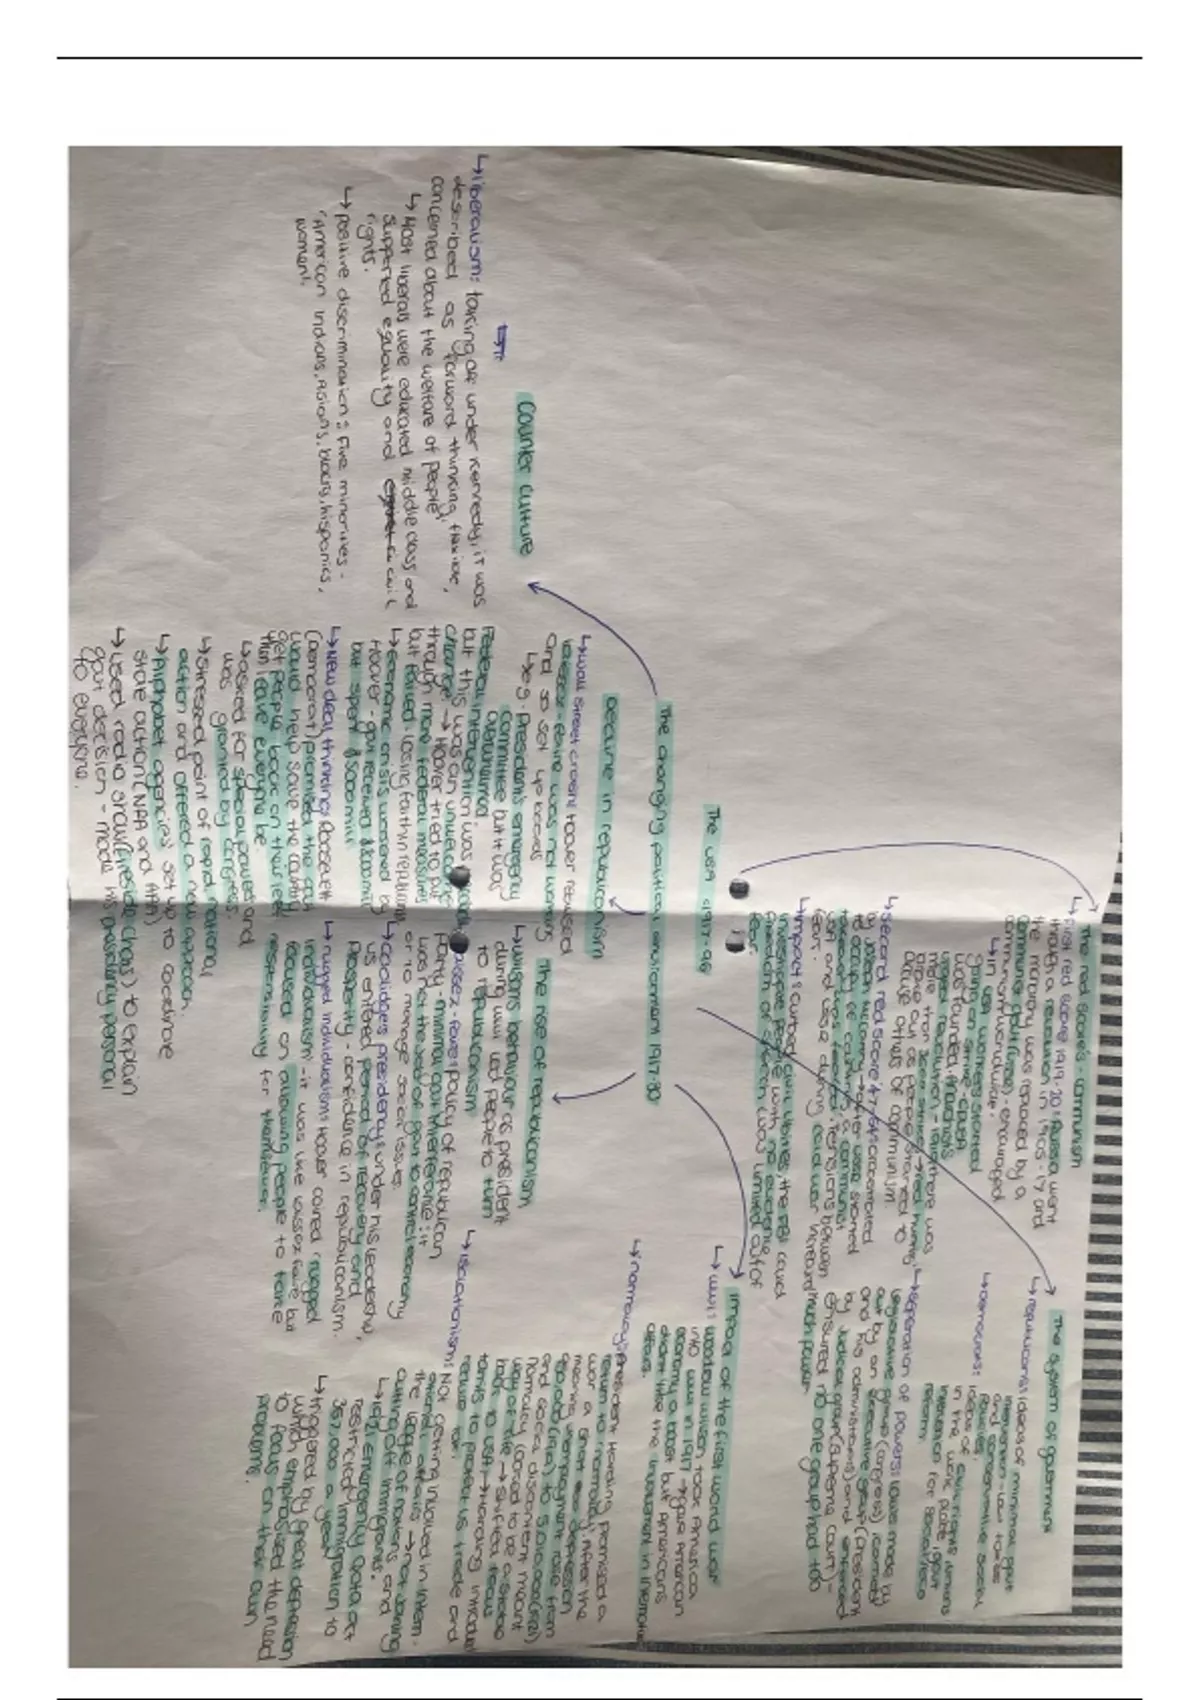 The USA 1917-96
The changing political environment 1917-80
The red scares - communism
↳ First red scare 1919-20: Russia went
through a revolution in 1905-17 and
the monarchy was replaced by a
communist
encouraged
communism worldwide.
↳ in USA workers started
going on strike -
was founded.
more than
arose out as people started to
accuse others of communism.
↳ second red scare 47-54:
by Joseph McCarthy → after war started
to occupy
countries, a communist
takeover was feared. Tensions between
USA and USSR during cold war increased
fear.
↳ impact: curbed civil liberties, the FBI could
investigate people with no evidence.
freedom of speech was limited out of
fear.
The system of government
↳ republicans: ideas of minimal govt
intervention - low taxes
and conservative social
policies.
↳ democrats:
ideas of civil rights, unions
in the work place, govt
intervention for social
reform.
↳ separation of powers: laws made by
legislative group (congress) carried
out by an executive group (president
and his administrations) and enforced
by judicial group (supreme court) =
ensured no one group had too
much power.
Impact of the first world war
↳ WWI: woodrow wilson took America
into WWI in 1917 → gave American
economy a boost but Americans
didn't like the involvement in
affairs.
↳ normalcy: President Harding promised a
return to normalcy. After the
war a short depression
meaning unemployment rose from
950,000 (1919) to 5,010,000 (1921)
and social discontent meant
normalcy
to be a
way of life → shifted focus
back to USA → Harding introduced
tariffs to protect US trade and
reduce tax.
↳ isolationism: Not getting involved in intern-
ational affairs → not joining
the league of nations and
cutting off immigrants.
↳ 1921 emergency quota act
restricted immigration to
357,000 a year
↳ triggered by great depression
which emphasised the need
to focus on their own
problems.
The rise of republicanism
↳ wilsons behaviour as president
during WWI led people to turn
to republicanism
↳ laissez-faire: policy of republican
party - minimal govt interference: it
was not the job of govt to control economy
or to manage social issues.
↳ Coolidge's presidency: under his leadership,
US entered period of recovery and
prosperity - confidence in republicanism.
↳ rugged individualism: Hoover coined rugged
individualism - it was like laissez faire but
focused on allowing people to take
responsibility for themselves.
Decline in republicanism
↳ wall street crash: Hoover realised
laissez-faire was not working
and so set up boards
↳ eg. President's emergency
committee but it was
overwhelmed.
Federal intervention was
but this was an unwelcome
change → Hoover tried to put
through more federal measures
but failed - losing faith in republicans
↳ economic crisis worsened by
Hoover - govt received
but spent $500mill
↳ New deal thinking: Roosevelt
(democrat) promised the govt
would help save the country
get people back on their feet
then leave everyone be.
↳ asked for special powers and
was granted by congress.
↳ stressed point of rapid national
action and offered a new approach.
↳ 'Alphabet agencies' set up to coordinate
state action (NRA and AAA)
↳ used radio shows (fireside chats) to explain
govt decision - made his presidency personal
to everyone.
Counter culture
↳ liberalism: taking off under Kennedy, it was
described as forward thinking, flexible,
concerned about the welfare of people
↳ Most liberals were educated middle class and
supported equality and civil
rights.
↳ positive discrimination: Five minorities -
'American Indians, Asians, blacks, hispanics,
women'.